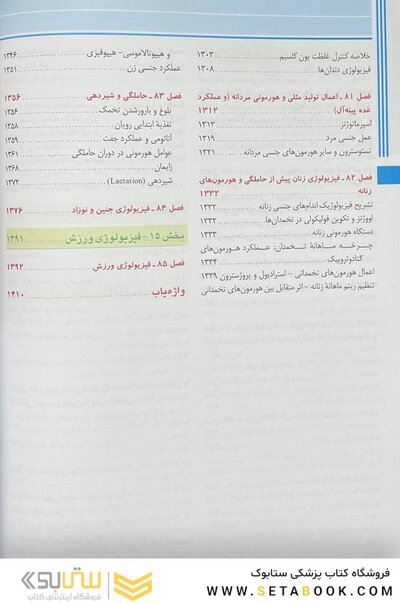 خلاصه کنترل غلظت یون کلسیم ۱۳۰۳
فیزیولوژی دندان‌ها ۱۳۰۸
فصل ۸۱ ـ اعمال تولید مثلی و هورمونی مردانه (و عملکرد
غده پینه‌آل) ۱۳۱۲
اسپرماتوژنز ۱۳۱۳
عمل جنسی مرد ۱۳۱۹
تستوسترون و سایر هورمون‌های جنسی مردانه ۱۳۲۱
فصل ۸۲ ـ فیزیولوژی زنان پیش از حاملگی و هورمون‌های
زنانه ۱۳۳۲
تشریح فیزیولوژیک اندام‌های جنسی زنانه ۱۳۳۲
اووژنز و تکوین فولیکولی در تخمدان‌ها ۱۳۳۲
دستگاه هورمونی زنانه ۱۳۳۳
چرخه ماهانهٔ تخمدان: عملکرد هورمون‌های
گنادوتروپیک ۱۳۳۴
اعمال هورمون‌های تخمدانی – استرادیول و پروژسترون ۱۳۳۹
تنظیم ریتم ماهانهٔ زنانه – اثر متقابل بین هورمونهای تخمدانی
و هیپوتالاموسی- هیپوفیزی ۱۳۴۶
عملکرد جنسی زن ۱۳۵۱
فصل ۸۳ ـ حاملگی و شیردهی ۱۳۵۶
بلوغ و بارورشدن تخمک ۱۳۵۶
تغذیهٔ ابتدایی رویان ۱۳۵۸
آناتومی و عملکرد جفت ۱۳۵۹
عوامل هورمونی در دوران حاملگی ۱۳۶۱
زایمان ۱۳۶۸
شیردهی (Lactation) ۱۳۷۲
فصل ۸۴ ـ فیزیولوژی جنین و نوزاد ۱۳۷۶
بخش ۱۵ - فیزیولوژی ورزش ۱۳۹۱
فصل ۸۵ ـ فیزیولوژی ورزش ۱۳۹۲
واژه‌یاب ۱۴۱۰
فروشگاه کتاب پزشکی ستابوک
WWW.SETABOOK.COM
ستابوک
فروشگاه اینترنتی کتاب